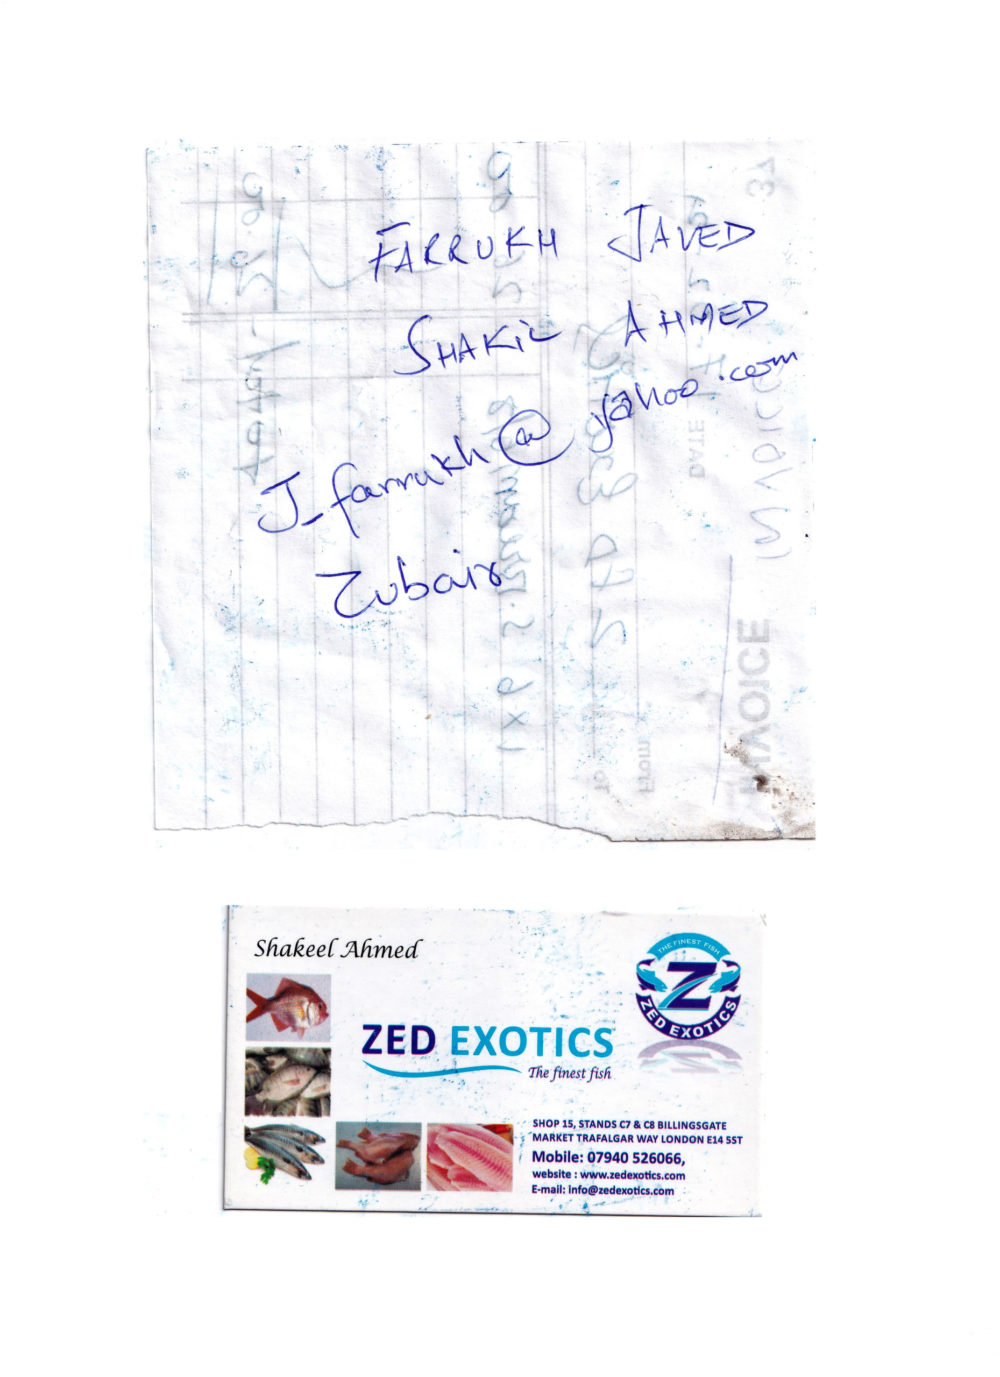 FARRUKH JAVED
SHAKIL AHMED
J_farrukh@yahoo.com
Zubair
INVOICE
DATE
From
To
Shakeel Ahmed
THE FINEST FISH
Z
ZED EXOTICS
ZED EXOTICS
The finest fish
SHOP 15, STANDS C7 & C8 BILLINGSGATE
MARKET TRAFALGAR WAY LONDON E14 5ST
Mobile: 07940 526066,
website : www.zedexotics.com
E-mail: info@zedexotics.com